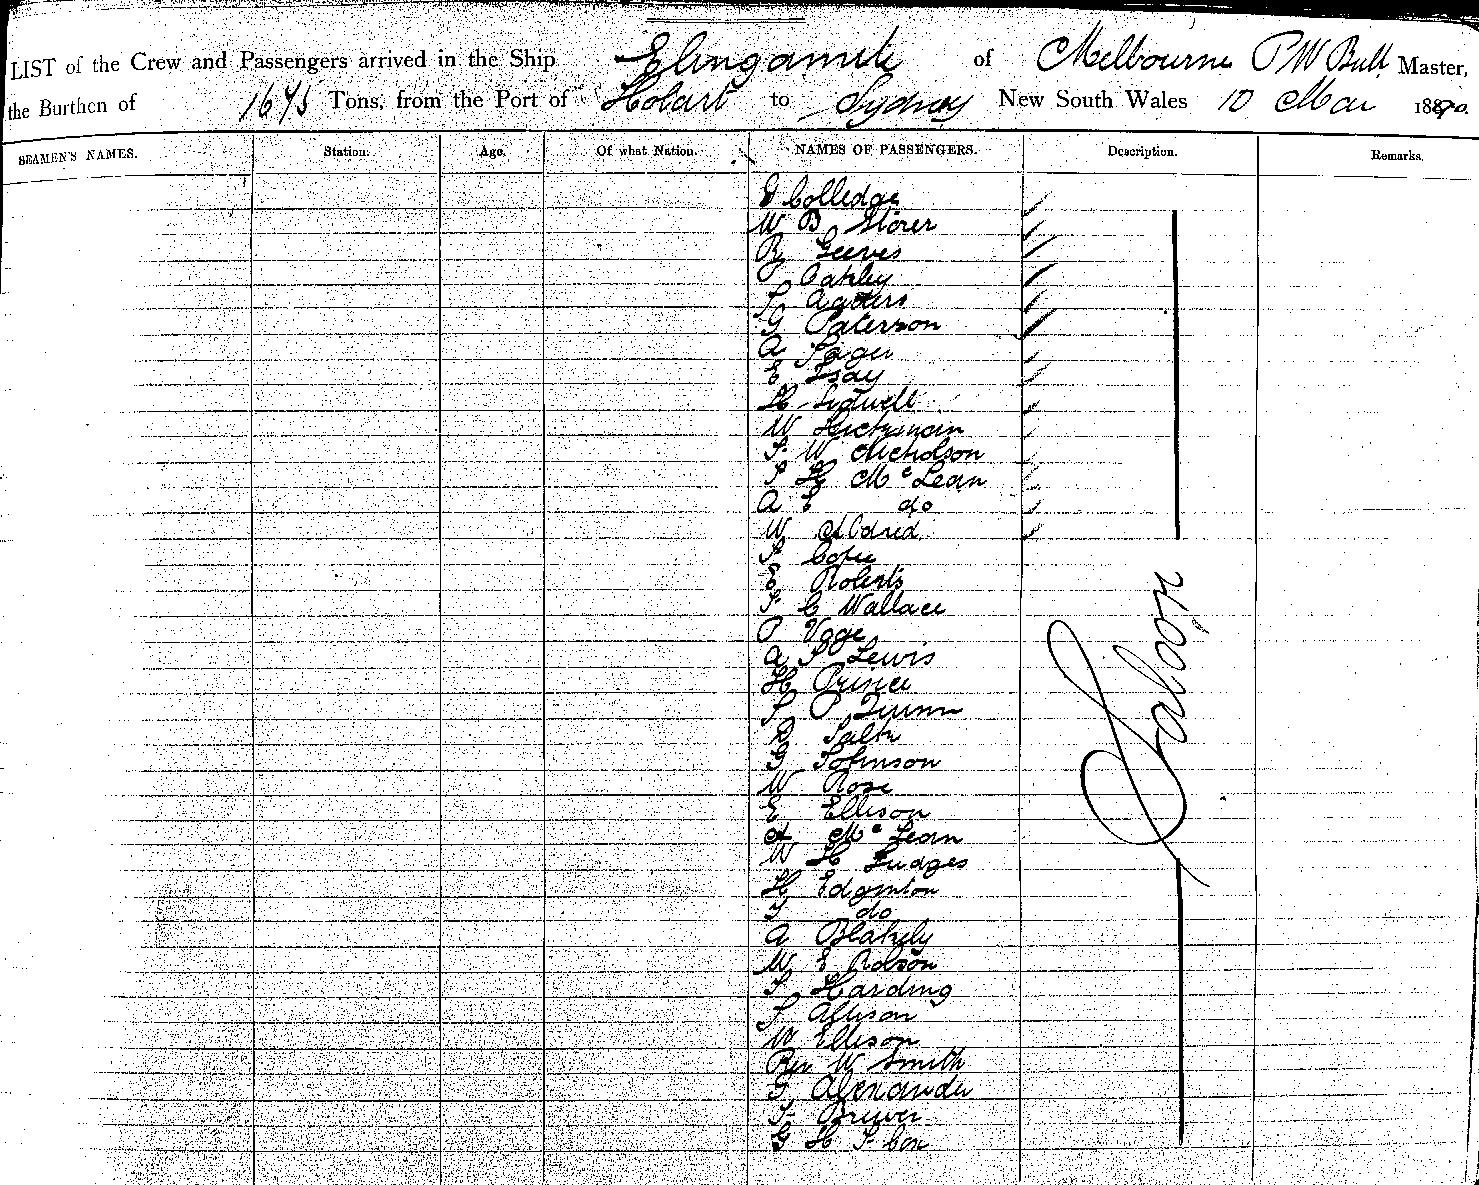 LIST of the Crew and Passengers arrived in the Ship Elingamite of Melbourne P W Bull Master,
the Burthen of 1675 Tons, from the Port of Hobart to Sydney New South Wales 10 Mar 1890.
SEAMEN'S NAMES. Station. Age. Of what Nation. NAMES OF PASSENGERS. Description. Remarks.
Colledge
W B Storer
Geeves
Oakley
G Paterson
A
E
H Sidwell
W Hickman
W Nicholson
H McLean
A E do
W
E Roberts
C Wallace
P
A Lewis
H Prince
P Quinn
G Johnson
W Rose
E Ellison
A McLean
W H Judges
H Edginton
do
A Blakely
W E Robson
Harding
Allison
W Ellison
Rev W Smith
G Alexander
Brewer
H Cox
Saloon